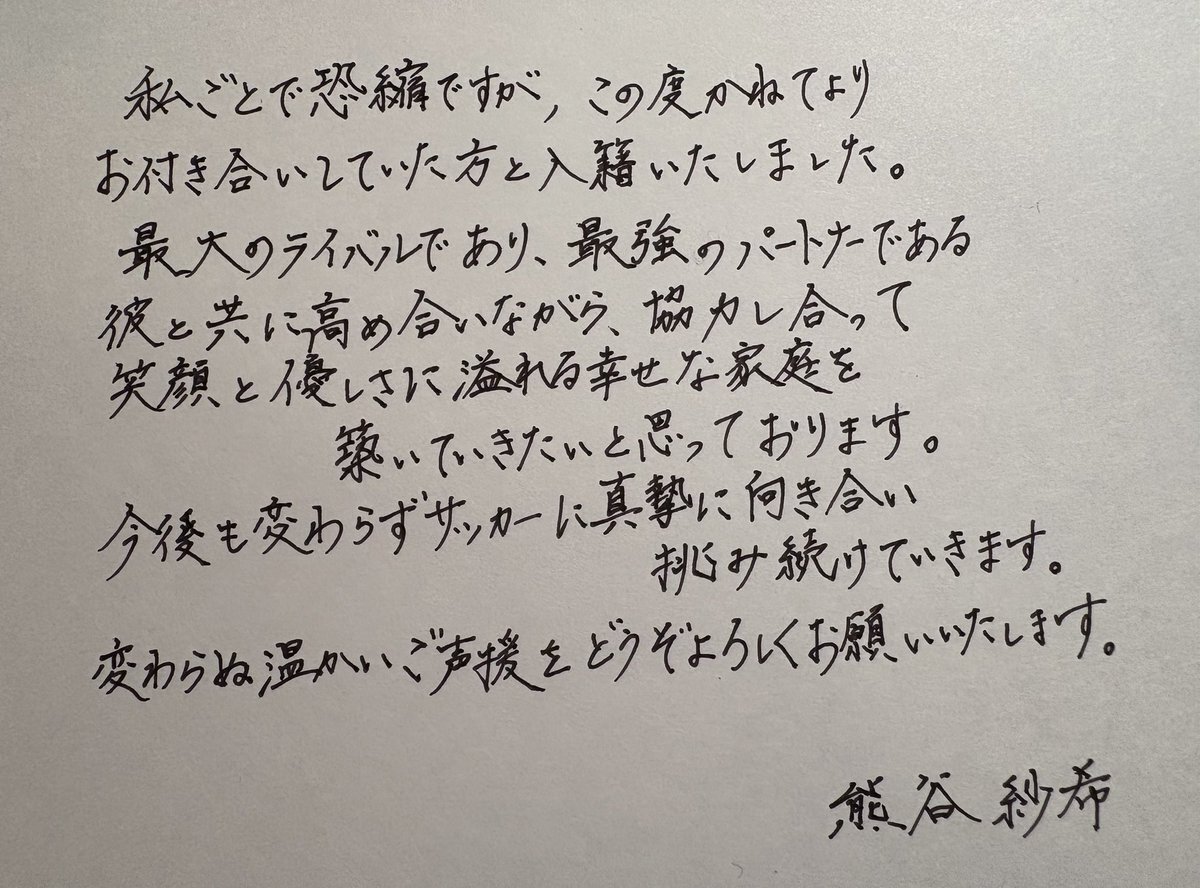 私ごとで恐縮ですが、この度かねてより
お付き合いしていた方と入籍いたしました。
最大のライバルであり、最強のパートナーである
彼と共に高め合いながら、協力し合って
笑顔と優しさに溢れる幸せな家庭を
築いていきたいと思っております。
今後も変わらずサッカーに真摯に向き合い
挑み続けていきます。
変わらぬ温かいご声援をどうぞよろしくお願いいたします。
熊谷紗希